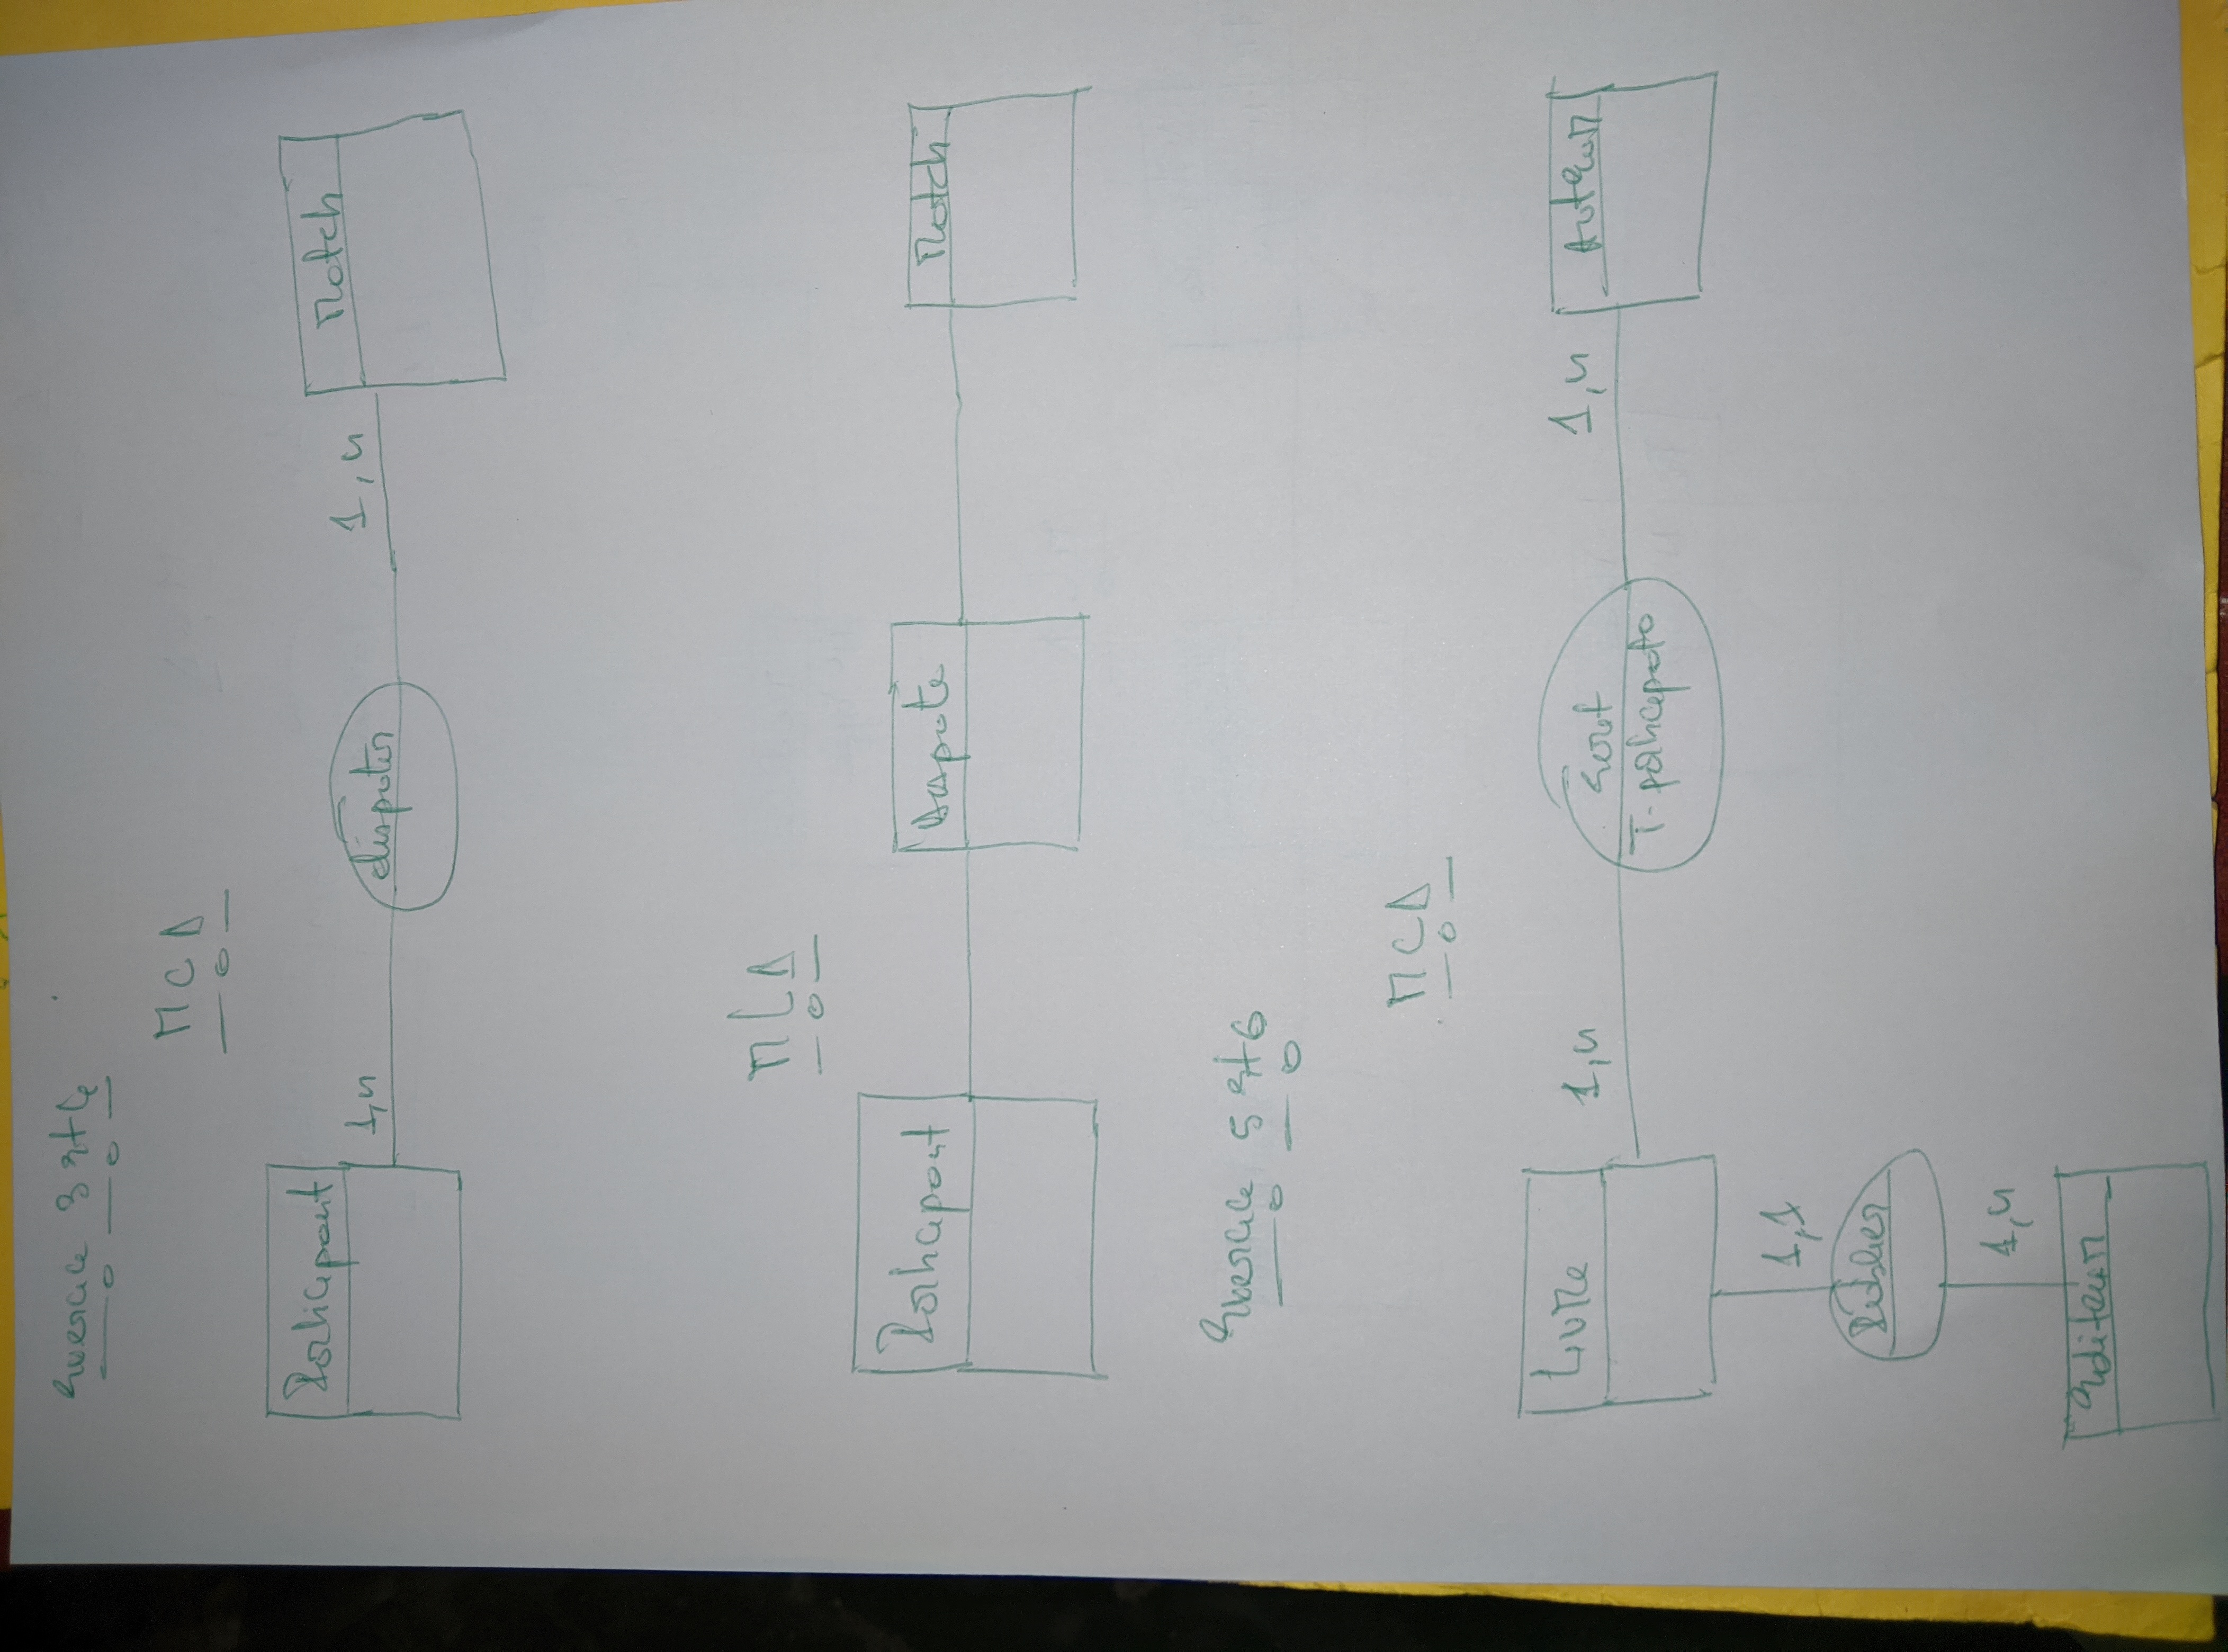 Exercice 3 et 4
MCD
Participant
1,n
disputer
1,n
Match
MLD
Participant
Dispute
Match
Exercice 5 et 6
MCD
Livre
1,n
Ecrit
T-participato
1,n
Auteur
1,1
Publier
1,n
Editeur